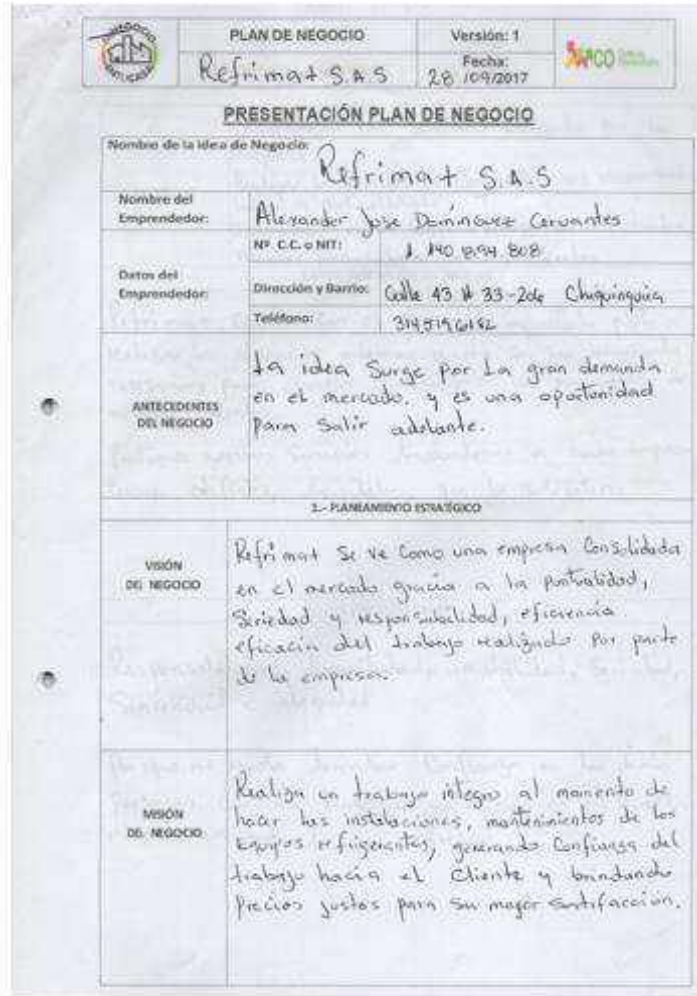 PLAN DE NEGOCIO
Versión: 1
Refrimat S.A.S
Fecha:
28 /09/2017
PRESENTACIÓN PLAN DE NEGOCIO
Nombre de la idea de Negocio:
Refrimat S.A.S
Nombre del
Emprendedor:
Alexander Jose Dominguez Cervantes
Datos del
Emprendedor:
Nº C.C. o NIT:
Dirección y Barrio:
Calle 43 # 33-206 Chiquinquira
Teléfono:
ANTECEDENTES
DEL NEGOCIO
La idea Surge por La gran demanda
en el mercado. y es una oportunidad
Para Salir adelante.
1.- PLANEAMIENTO ESTRATÉGICO
VISIÓN
DEL NEGOCIO
Refrimat Se ve Como una empresa Consolidada
en el mercado gracia a la Puntualidad,
Seriedad y responsabilidad, eficiencia
eficacia del trabajo realizado Por parte
de la empresa.
MISIÓN
DEL NEGOCIO
Realiza un trabajo integro al momento de
hacer las instalaciones, mantenimientos de los
Equipos refrigerantes, generando Confianza del
trabajo hacia el Cliente y brindando
Precios justos para su mayor satisfacción.